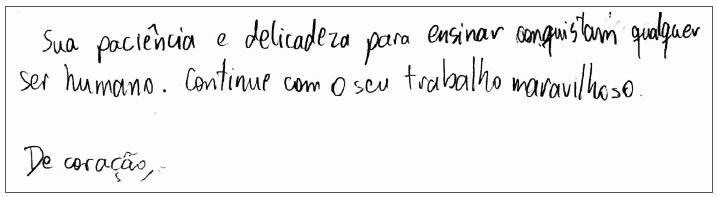 Sua paciência e delicadeza para ensinar conquistam qualquer
ser humano. Continue com o seu trabalho maravilhoso.
De coração,